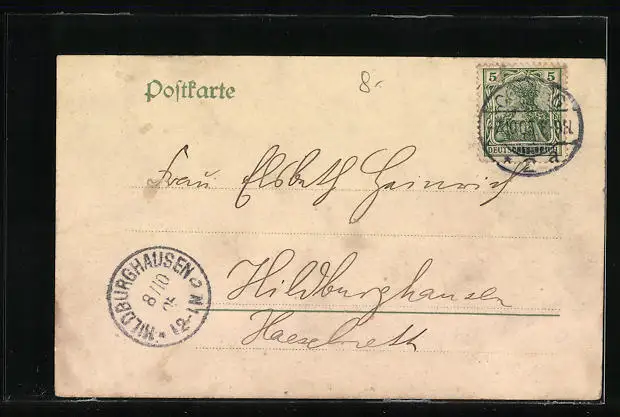 Postkarte
8.-
5 5
DEUTSCHES REICH
* 2 a
Frau Elsbeth Heinrich
Hildburghausen
HILDBURGHAUSEN
8/10
05
* 12-1 N